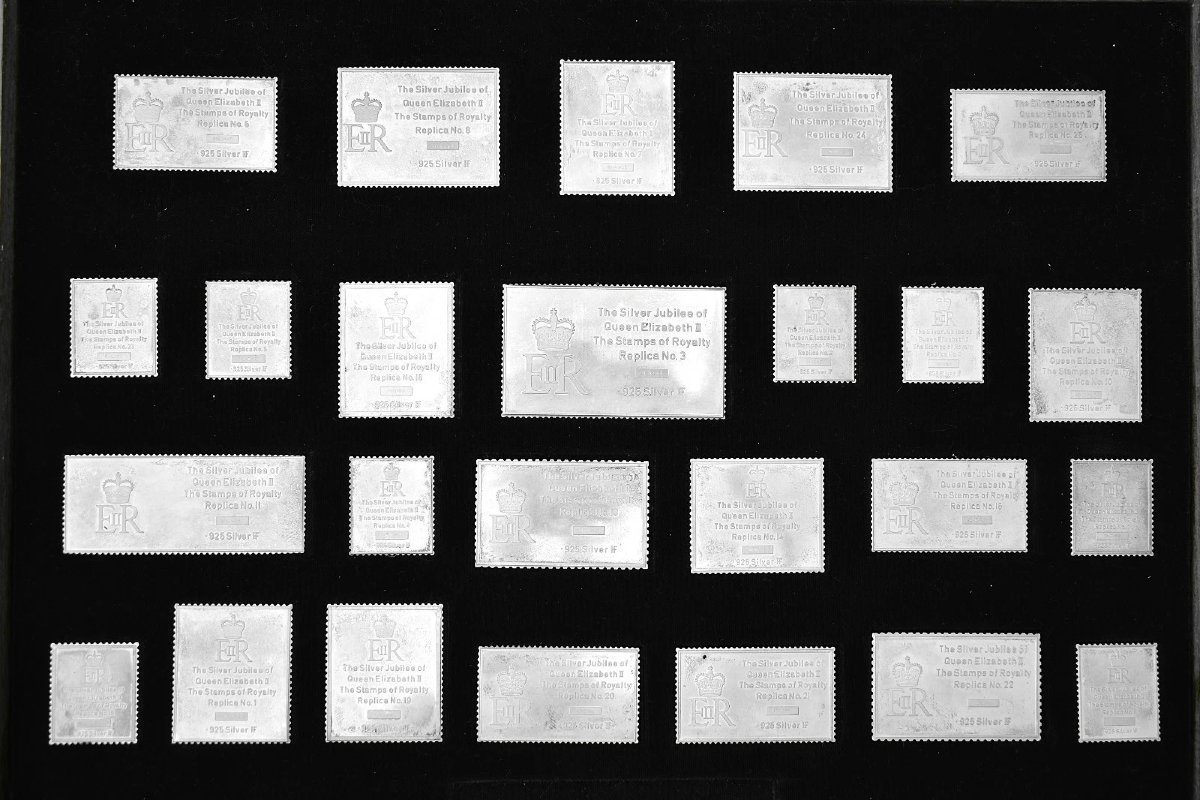 The Silver Jubilee of
Queen Elizabeth II
The Stamps of Royalty
Replica No. 6
925 Silver IF
EIIR
The Silver Jubilee of
Queen Elizabeth II
The Stamps of Royalty
Replica No. 8
925 Silver IF
EIIR
EIIR
The Silver Jubilee of
Queen Elizabeth II
The Stamps of Royalty
Replica No. 7
925 Silver IF
The Silver Jubilee of
Queen Elizabeth II
The Stamps of Royalty
Replica No. 24
925 Silver IF
EIIR
The Silver Jubilee of
Queen Elizabeth II
The Stamps of Royalty
Replica No. 25
925 Silver IF
EIIR
EIIR
The Silver Jubilee of
Queen Elizabeth II
The Stamps of Royalty
Replica No.
925 Silver IF
EIIR
The Silver Jubilee of
Queen Elizabeth II
The Stamps of Royalty
Replica No.
925 Silver IF
EIIR
The Silver Jubilee of
Queen Elizabeth II
The Stamps of Royalty
Replica No.
925 Silver IF
The Silver Jubilee of
Queen Elizabeth II
The Stamps of Royalty
Replica No. 3
925 Silver IF
EIIR
EIIR
The Silver Jubilee of
Queen Elizabeth II
The Stamps of Royalty
Replica No.
925 Silver IF
EIIR
EIIR
The Silver Jubilee of
Queen Elizabeth II
The Stamps of Royalty
Replica No.
925 Silver IF
The Silver Jubilee of
Queen Elizabeth II
The Stamps of Royalty
Replica No. 11
925 Silver IF
EIIR
EIIR
The Silver Jubilee of
Queen Elizabeth II
The Stamps of Royalty
Replica No. 4
925 Silver IF
EIIR
925 Silver IF
EIIR
The Silver Jubilee of
Queen Elizabeth II
The Stamps of Royalty
Replica No. 14
925 Silver IF
The Silver Jubilee of
Queen Elizabeth II
The Stamps of Royalty
Replica No.
925 Silver IF
EIIR
EIIR
EIIR
925 Silver IF
EIIR
The Silver Jubilee of
Queen Elizabeth II
The Stamps of Royalty
Replica No. 1
925 Silver IF
EIIR
The Silver Jubilee of
Queen Elizabeth II
The Stamps of Royalty
Replica No. 19
925 Silver IF
The Silver Jubilee of
Queen Elizabeth II
The Stamps of Royalty
Replica No. 20
925 Silver IF
EIIR
The Silver Jubilee of
Queen Elizabeth II
The Stamps of Royalty
Replica No. 21
925 Silver IF
EIIR
The Silver Jubilee of
Queen Elizabeth II
The Stamps of Royalty
Replica No. 22
925 Silver IF
EIIR
EIIR
925 Silver IF